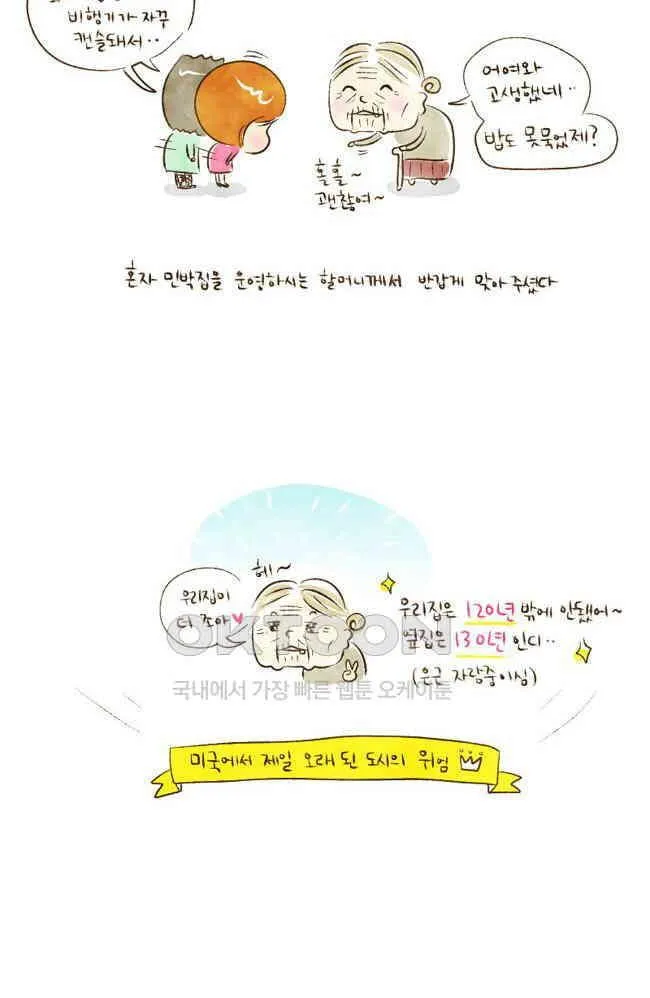 비행기가 자꾸
캔슬돼서..
어여와
고생했네..
밥도 못묵었제?
홀홀~
괜찮여~
혼자 민박집을 운영하시는 할머니께서 반갑게 맞아 주셨다
헤~
우리집이
더 조아
우리집은 120년 밖에 안됐어~
옆집은 130년 인디..
(은근 자랑중이심)
OKTOON
국내에서 가장 빠른 웹툰 오케이툰
미국에서 제일 오래 된 도시의 위엄